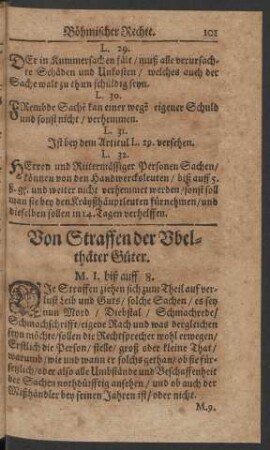 Böhmischer Rechte. 101
L. 29.
DEr in Kummersachen fält / muß alle verursach-
te Schäden und Unkosten / welches auch der
Sachewalt zu thun schüldig seyn.
L. 30.
FRembde Sache kan einer wegē eigener Schuld
und sonst nicht / verhemmen.
L. 31.
Ist bey dem Articul L. 29. versehen.
L. 32.
HErren und Rittermässiger Personen Sachen /
können von den Handwercksleuten / biß auff 5.
ß. gr. und weiter nicht verhemmet werden / sonst soll
man sie bey den Kräyßhäuptleuten fürnehmen / und
dieselben sollen in 14. Tagen verhelffen.
Von Straffen der Vbel-
thäter Güter.
M. 1. biß auff 8.
DIe Straffen ziehen sich zum Theil auf ver-
lust Leib und Guts / solche Sachen / es sey
nun Mord / Diebstal / Schmachrede /
Schmachschrifft / eigene Rach und was dergleichen
seyn möchte / sollen die Rechtsprecher wohl erwegen /
Erstlich die Person / stelle / groß oder kleine That /
warumb / wie und wann er solchs gethan / ob sie für-
setzlich / oder also alle Umbstände und Beschaffenheit
der Sachen nothdürfftig ansehen / und ob auch der
Mißhändler bey seinen Jahren ist / oder nicht.
M. 9.